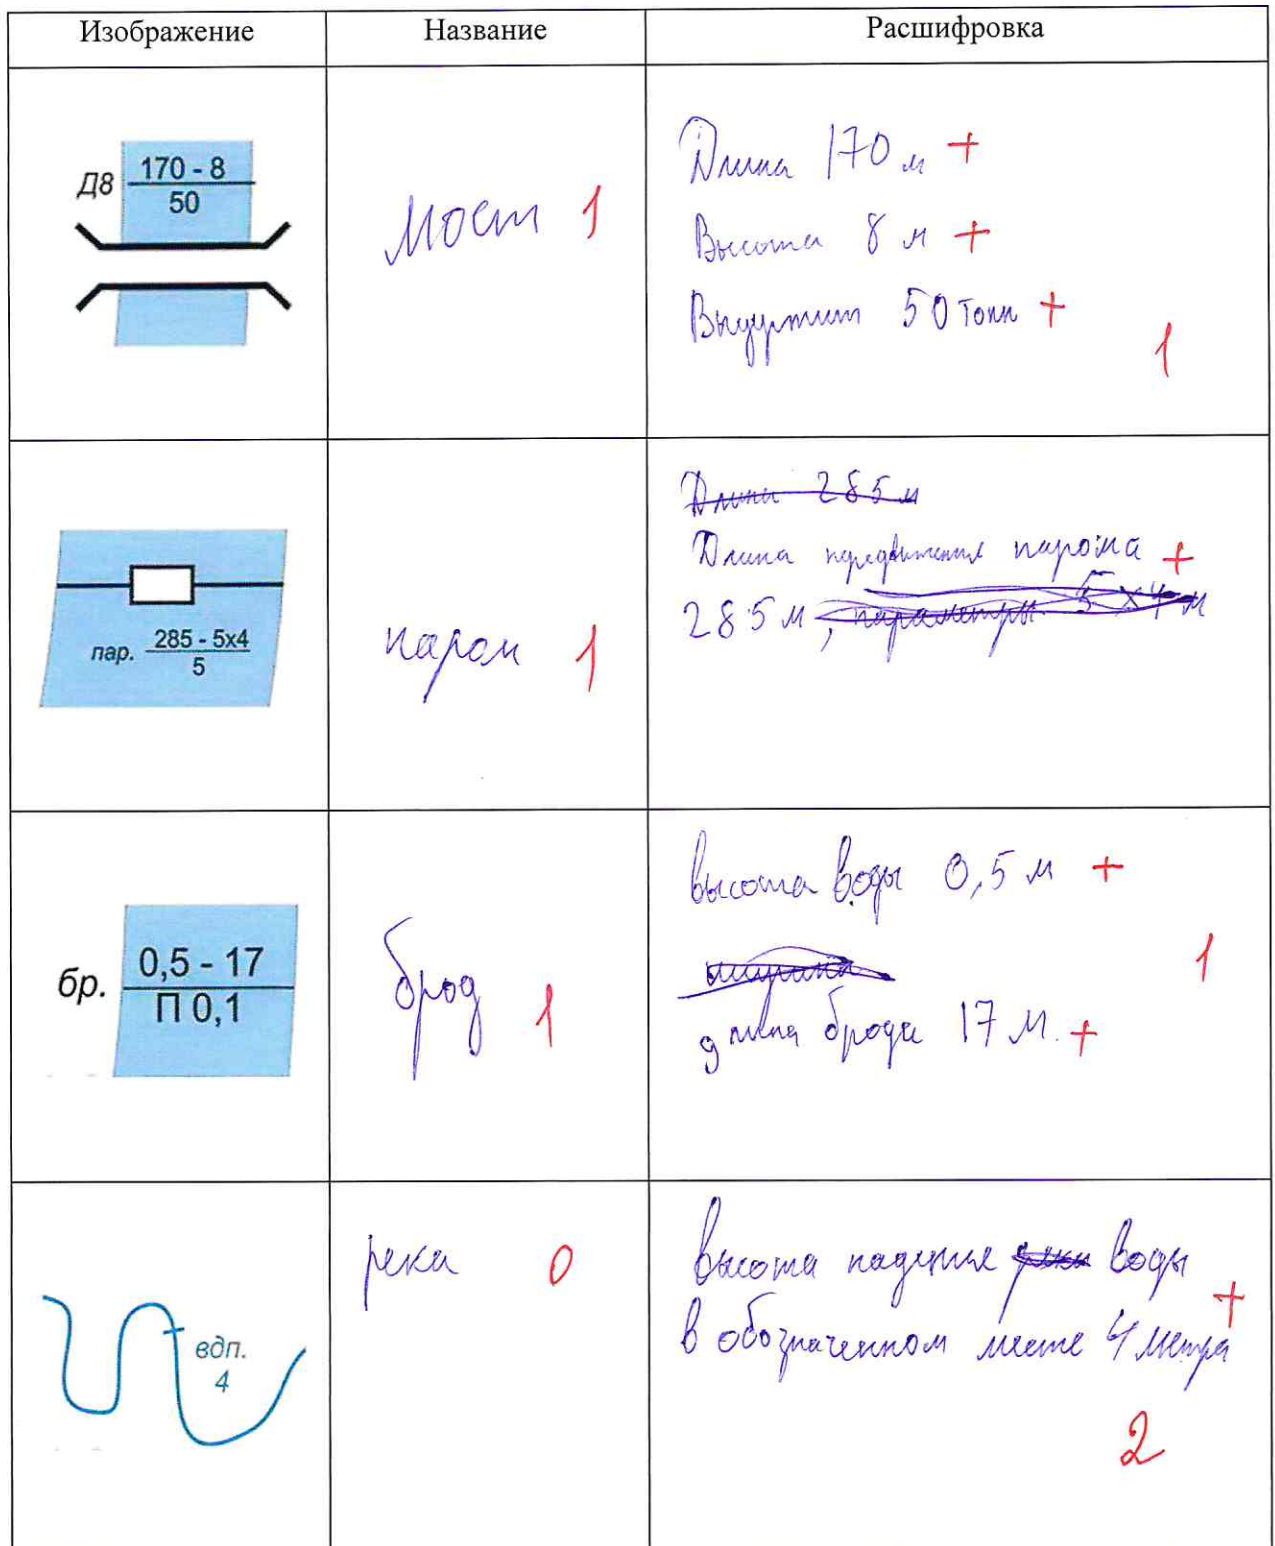 Изображение
Название
Расшифровка
Д8 170 - 8
50
мост 1
Длина 170 м +
Высота 8 м +
Выдержит 50 тонн +
1
пар. 285 - 5х4
5
паром 1
Длина 285 м
Длина передвижения парома +
285 м, параметры 5 х 4 м
бр. 0,5 - 17
П 0,1
брод 1
высота воды 0,5 м +
1
ширина
длина брода 17 м. +
вдп.
4
река 0
высота падения реки воды
в обозначенном месте 4 метра +
2